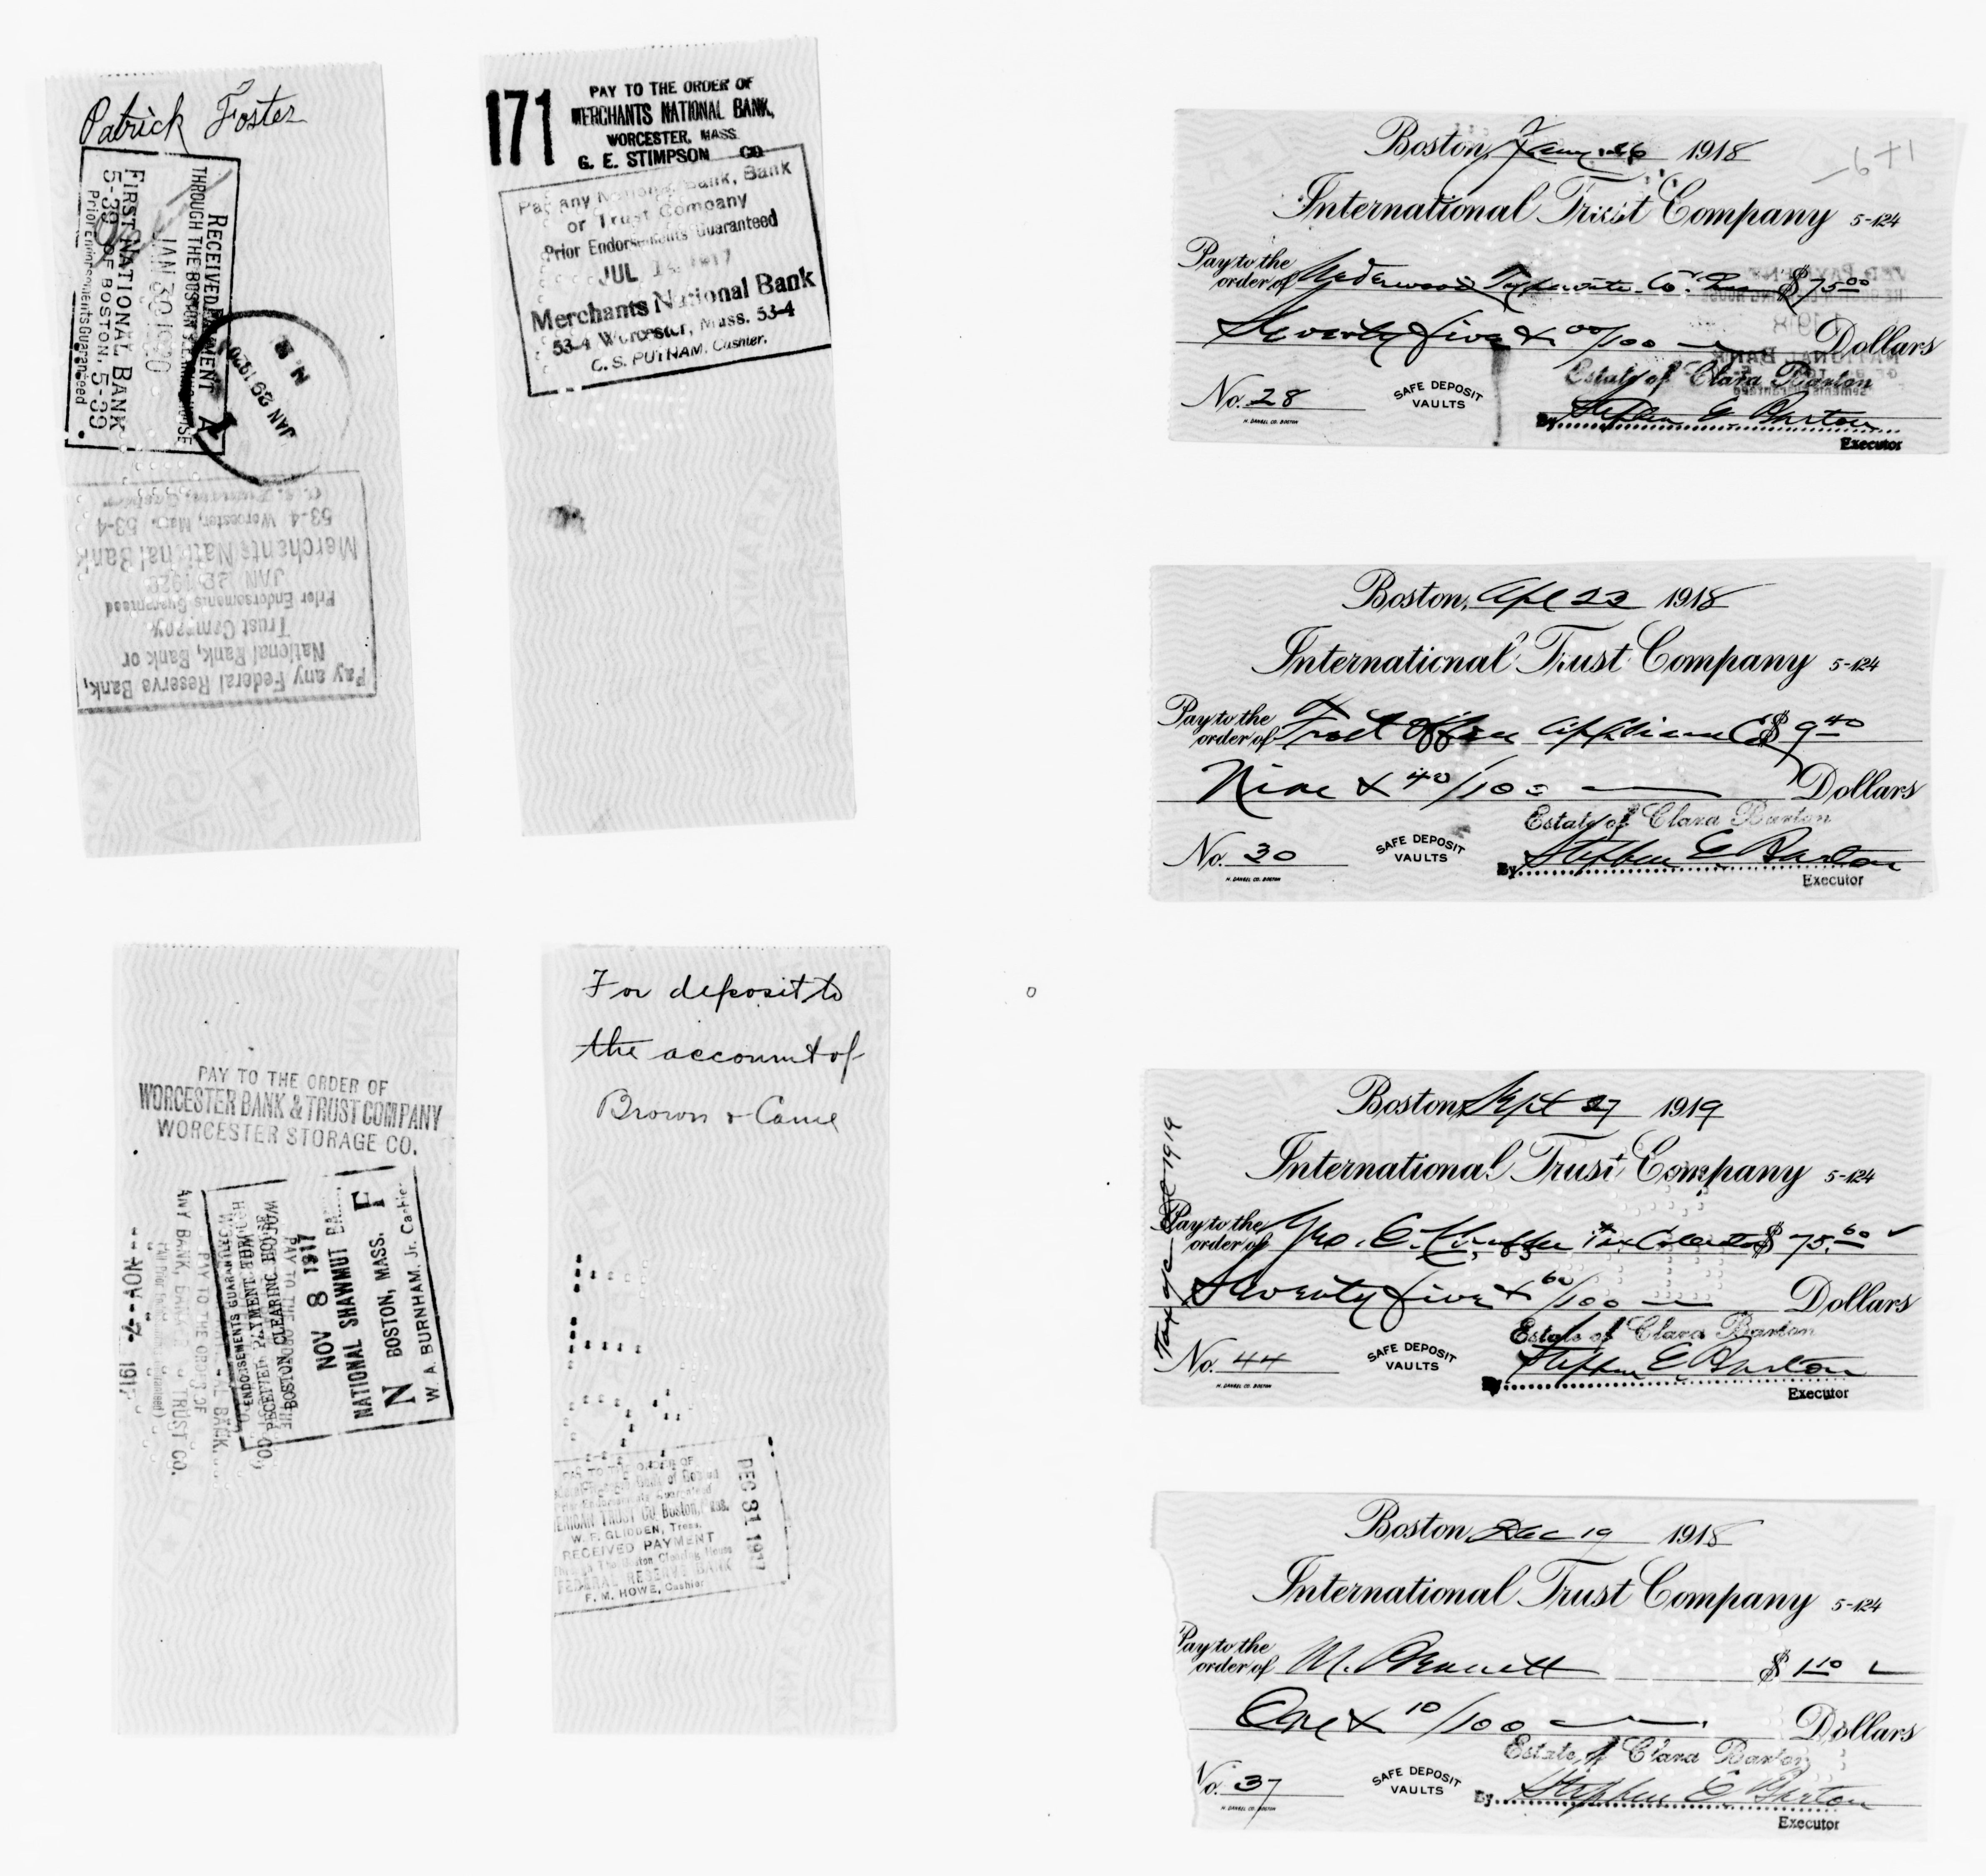 Patrick Foster
RECEIVED PAYMENT A
THROUGH THE BOSTON CLEARING HOUSE
JAN 30 1920
FIRST NATIONAL BANK
5-39 OF BOSTON, 5-39
Prior Endorsements Guaranteed
JAN 29 1920
Pay any Federal Reserve Bank,
National Bank, Bank or
Trust Company.
Prior Endorsements Guaranteed
JAN 1920
Merchants National Bank
53-4 Worcester, Mass. 53-4
171
PAY TO THE ORDER OF
MERCHANTS NATIONAL BANK,
WORCESTER, MASS.
G. E. STIMPSON CO.
Pay any National Bank, Bank
or Trust Company
Prior Endorsements Guaranteed
JUL 1917
Merchants National Bank
53-4 Worcester, Mass. 53-4
C. S. PUTNAM, Cashier.
PAY TO THE ORDER OF
WORCESTER BANK & TRUST COMPANY
WORCESTER STORAGE CO.
ANY BANK, TRUST CO.
PAY TO THE ORDER OF
ENDORSEMENTS GUARANTEED
RECEIVED PAYMENT THROUGH
BOSTON CLEARING HOUSE
NOV 8 1917
NATIONAL SHAWMUT BANK
N BOSTON, MASS. F
W. A. BURNHAM, Jr. Cashier
For deposit to
the account of
Brown & Came
PAY TO THE ORDER OF
W. F. GLIDDEN, Treas.
RECEIVED PAYMENT
Boston Clearing House
FEDERAL RESERVE BANK
F. M. HOWE, Cashier
DEC 31 1917
Boston, Jany 26 1918
International Trust Company 5-124
Pay to the order of Underwood Typewriter Co. $75.00
Seventy five & 00/100 Dollars
Estate of Clara Barton
No. 28 SAFE DEPOSIT VAULTS By Stephen E. Barton
H. DANGEL CO. BOSTON
Executor
Boston, Apl 23 1918
International Trust Company 5-124
Pay to the order of Frost Office Appliance Co $9.40
Nine & 40/100 Dollars
Estate of Clara Barton
No. 30 SAFE DEPOSIT VAULTS By Stephen E. Barton
H. DANGEL CO. BOSTON
Executor
Boston, Sept 27 1919
International Trust Company 5-124
Pay to the order of Geo. C. Tax Collector $75.60
Seventy five & 60/100 Dollars
Estate of Clara Barton
No. 44 SAFE DEPOSIT VAULTS By Stephen E. Barton
H. DANGEL CO. BOSTON
Executor
1919
Boston, Dec 19 1918
International Trust Company 5-124
Pay to the order of M. Bennett $1.10
One & 10/100 Dollars
Estate of Clara Barton
No. 37 SAFE DEPOSIT VAULTS By Stephen E. Barton
H. DANGEL CO. BOSTON
Executor